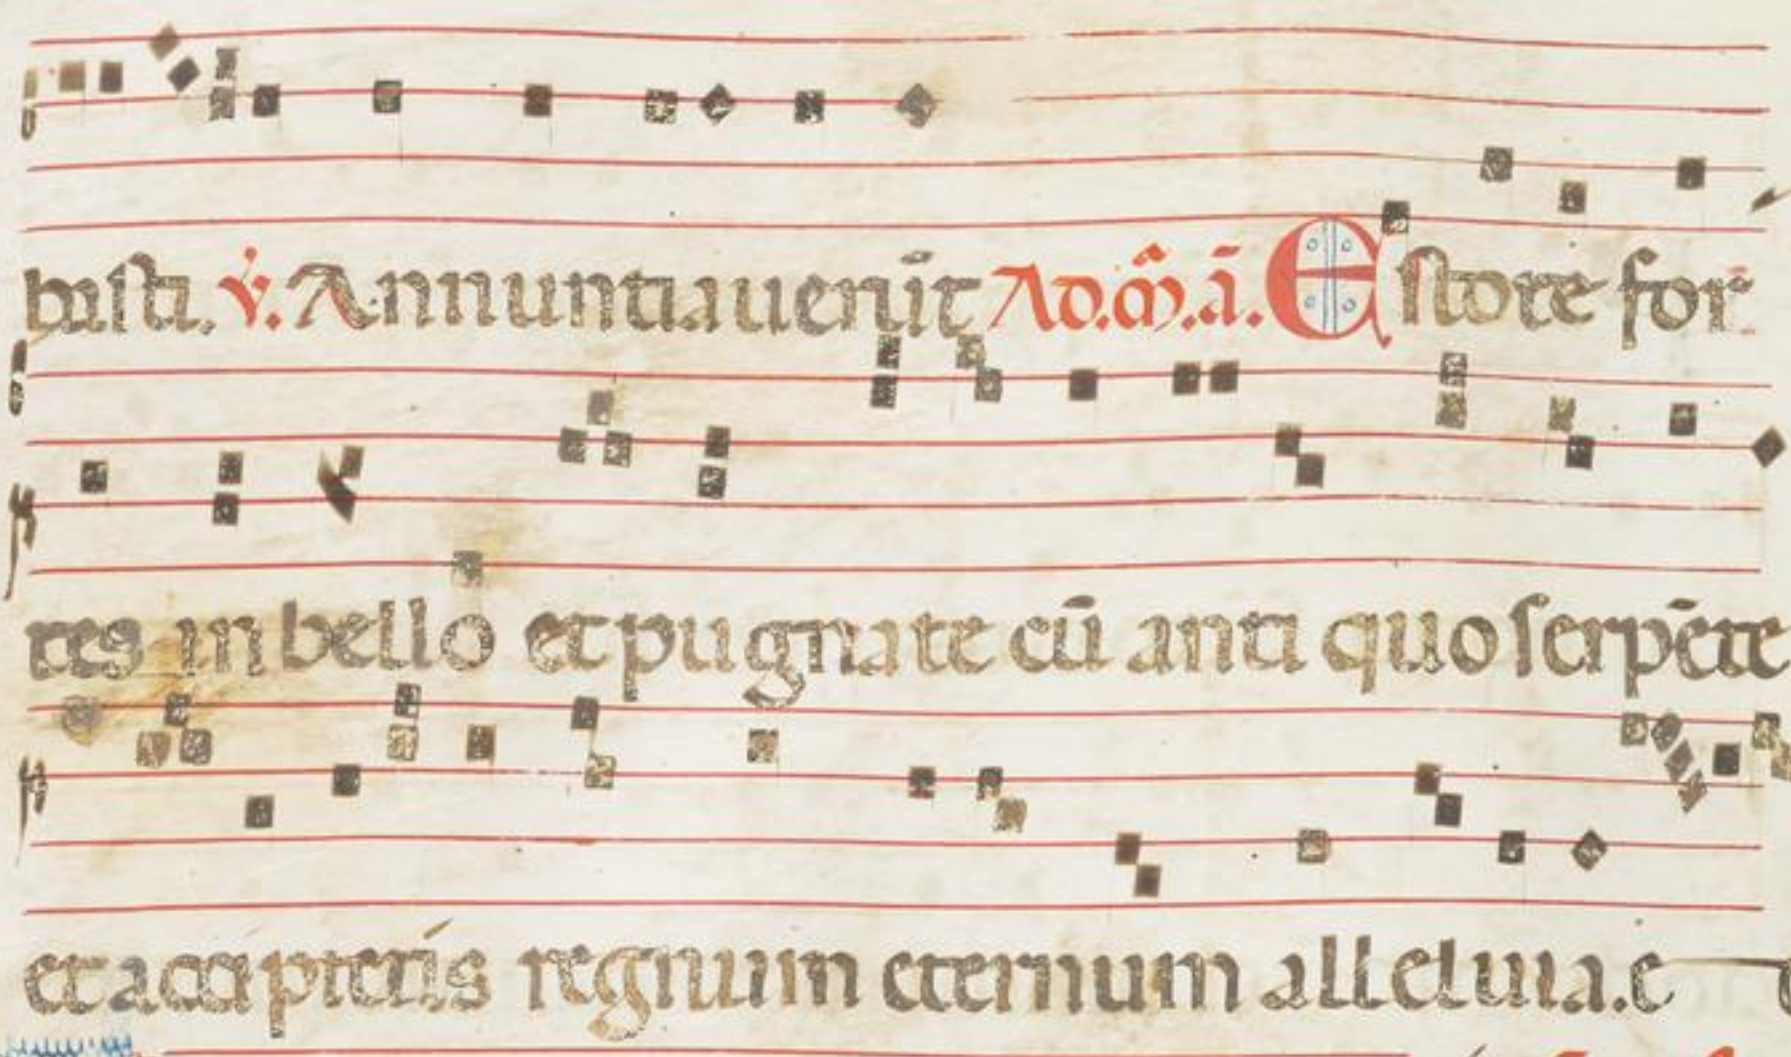 buisti. v. Annuntiauerūt Ad.m̄.ā. Estote for
tes in bello et pugnate cū antiquo serpēte
et accipietis regnum eternum alleluia. e